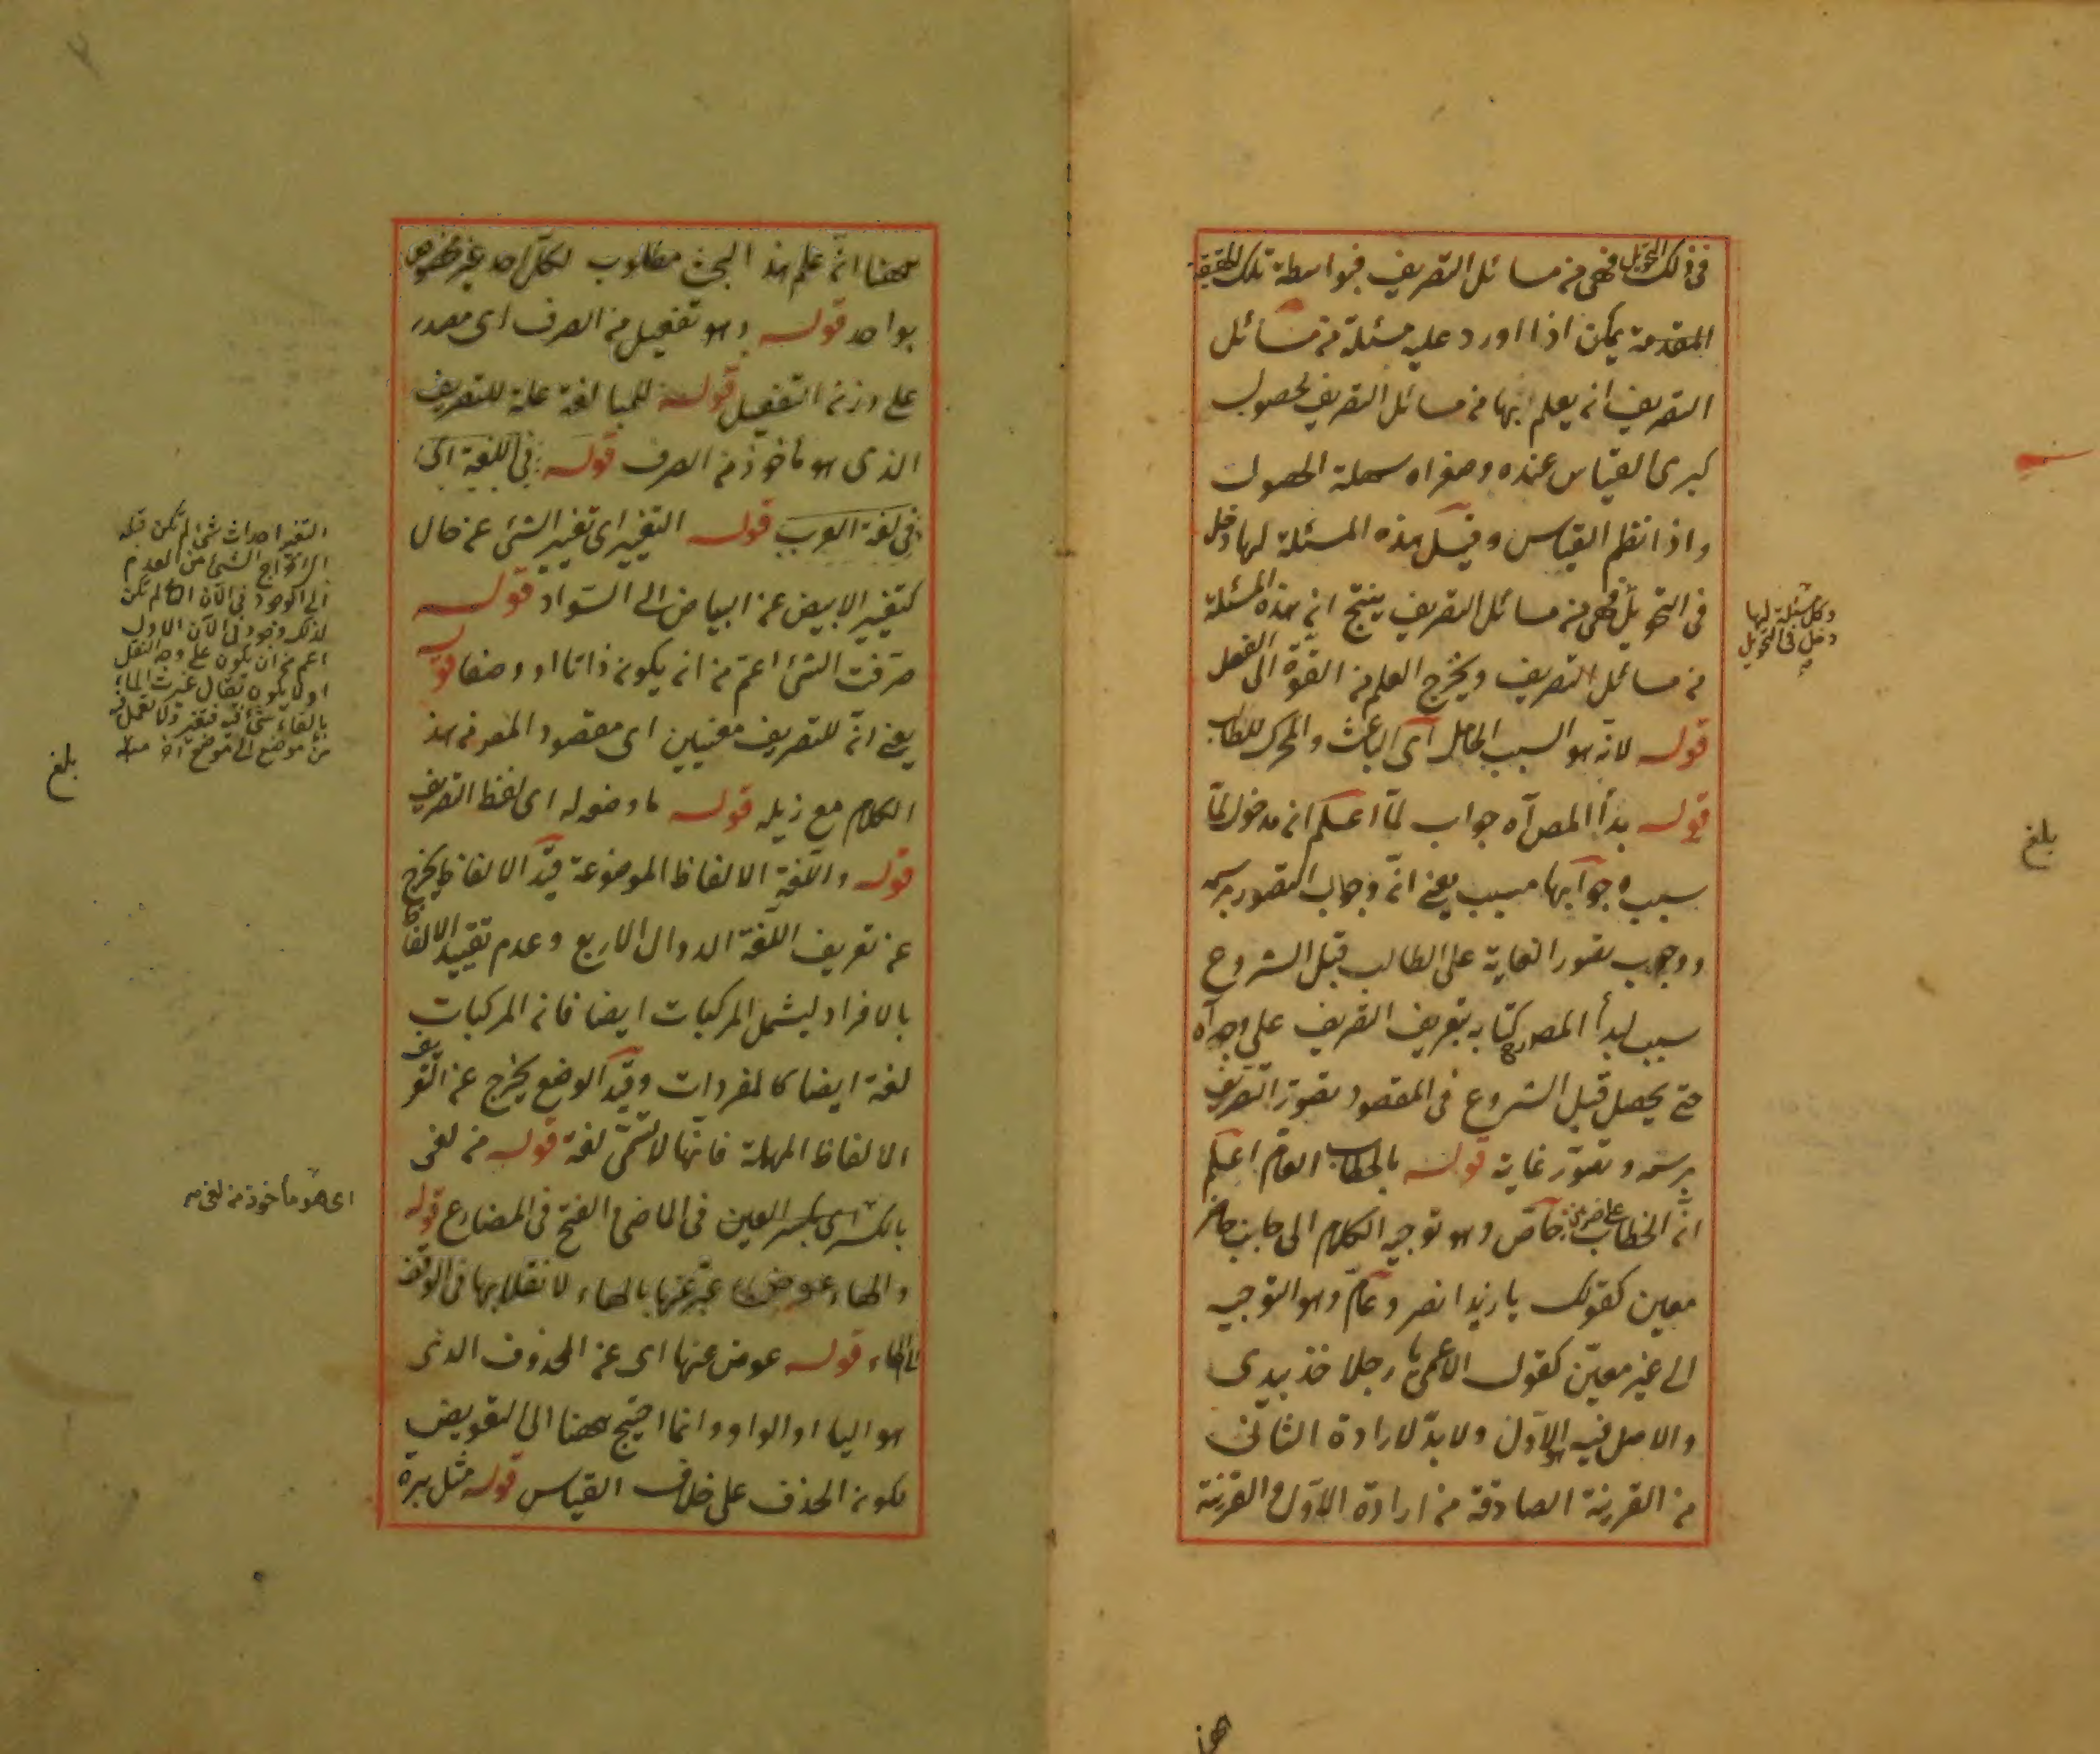 فى ذلك التحويل فهى من مسائل التصريف فبواسطة تلك الحقيقة
المقدمة يمكن اذا اورد عليه مسئلة من مسائل
التصريف ان يعلم انها من مسائل التصريف لحصول
كبرى القياس عنده وصغراه سهلة الحصول
واذا نظم القياس وقيل هذه المسئلة لها دخل
فى التحويل فهى من مسائل التصريف ينتج ان هذه المسئلة
من مسائل التصريف ويخرج العلم من القوة الى الفعل
قوله لانه هو السبب الحامل اى الباعث والمحرك للطالب
قوله بدأ المص آه جواب لما اعلم ان مدخول لما
سبب وجوابها مسبب يعنى انه وجوب التصور برسمه
ووجوب تصور الغاية على الطالب قبل الشروع
سبب لبدأ المص كتابه بتعريف التصريف على وجه آه
حتى يحصل قبل الشروع فى المقصود تصور التصريف
برسمه وتصور غايته قوله بالخطاب العام اعلم
ان الخطاب على ضربين خاص وهو توجيه الكلام الى جانب حاضر
معين كقولك يا زيد انصر وعام وهو التوجيه
الى غير معين كقول الاعمى يا رجلا خذ بيدى
والاصل فيه هو الاول ولا بد لارادة الثانى
من القرينة الصارفة من ارادة الاول والقرينة
وكل مسئلة لها
دخل فى التحويل
بلغ
ههنا
ههنا ان علم هذا البحث مطلوب لكل احد غير مخصوص
بواحد قوله وهو تفعيل من الصرف اى مصدر
على وزن التفعيل قوله للمبالغة علة للتصريف
الذى هو مأخوذ من الصرف قوله فى اللغة اى
فى لغة العرب قوله التغيير اى تغيير الشئ عن حال
كتغيير الابيض عن البياض الى السواد قوله
صرفت الشئ اعم من ان يكون ذاتا او وصفا قوله
يعنى ان للتصريف معنيين اى مقصود المص من هذا
الكلام مع ذيله قوله ما وضع له اى لفظ التصريف
قوله واللغة الالفاظ الموضوعة قيد الالفاظ يخرج
عن تعريف اللغة الدوال الاربع وعدم تقييد الالفاظ
بالافراد ليشمل المركبات ايضا فان المركبات
لغة ايضا كالمفردات وقيد الوضع يخرج عن التعريف
الالفاظ المهملة فانها لا تسمى لغة قوله من لغى
بالكسر اى بكسر العين فى الماضى والفتح فى المضارع قوله
والهاء عوض عبر عنها بالهاء لانقلابها فى الوقف
بالهاء قوله عوض عنها اى عن المحذوف الذى
هو الياء او الواو وانما احتيج ههنا الى التعويض
لكون الحذف على خلاف القياس قوله مثل برة
التغيير احداث شئ لم يكن قبله
اى اخراج الشئ من العدم
الى الوجود فى الآن الذى لم يكن
لذلك وجود فى الآن الاول
اعم من ان يكون على وجه النقل
او لا يكون يقال غيرت الماء
بالقاء شئ فيه فتغير ولا نقل فيه
من موضع الى موضع آخر منه
بلغ
اى هو مأخوذ من لغى